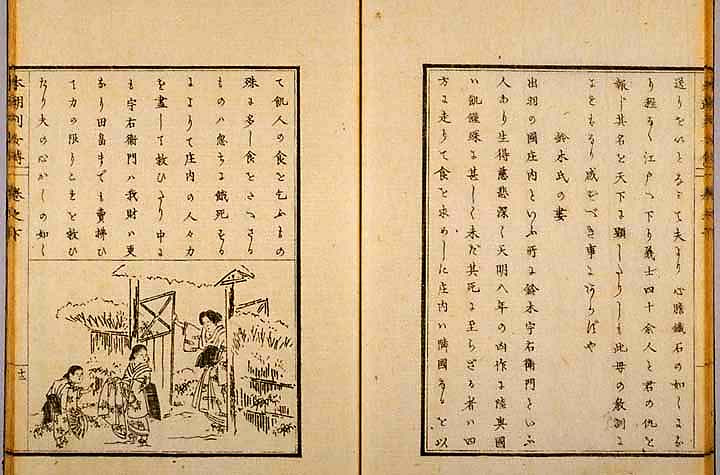 送りをいとなミて夫より心膽鐵石の如く
り江戸へ下り義士四十余人と君の仇を
報じ其名を天下に顕したりしも此母の教訓に
感ずべき事
鈴木氏の妻
出羽の國庄内といふ所に鈴木宇右衛門といふ
人あり生得慈悲深く天明八年の凶作に陸奥國
ハ飢饉殊に甚しく未だ其死に至らざる者ハ四
方に走りて食を求めしに庄内ハ隣國なるを以
て飢人の食を乞ふもの
殊に多し食を
ものハ忽ち餓死
によりて庄内の人々力
を盡して救ひたり中に
も宇右衛門ハ我財ハ更
なり田畠までも賣拂ひ
て力の限りこれを救ひ
たり夫の心かくの如く
本朝列女傳 巻之下
十三